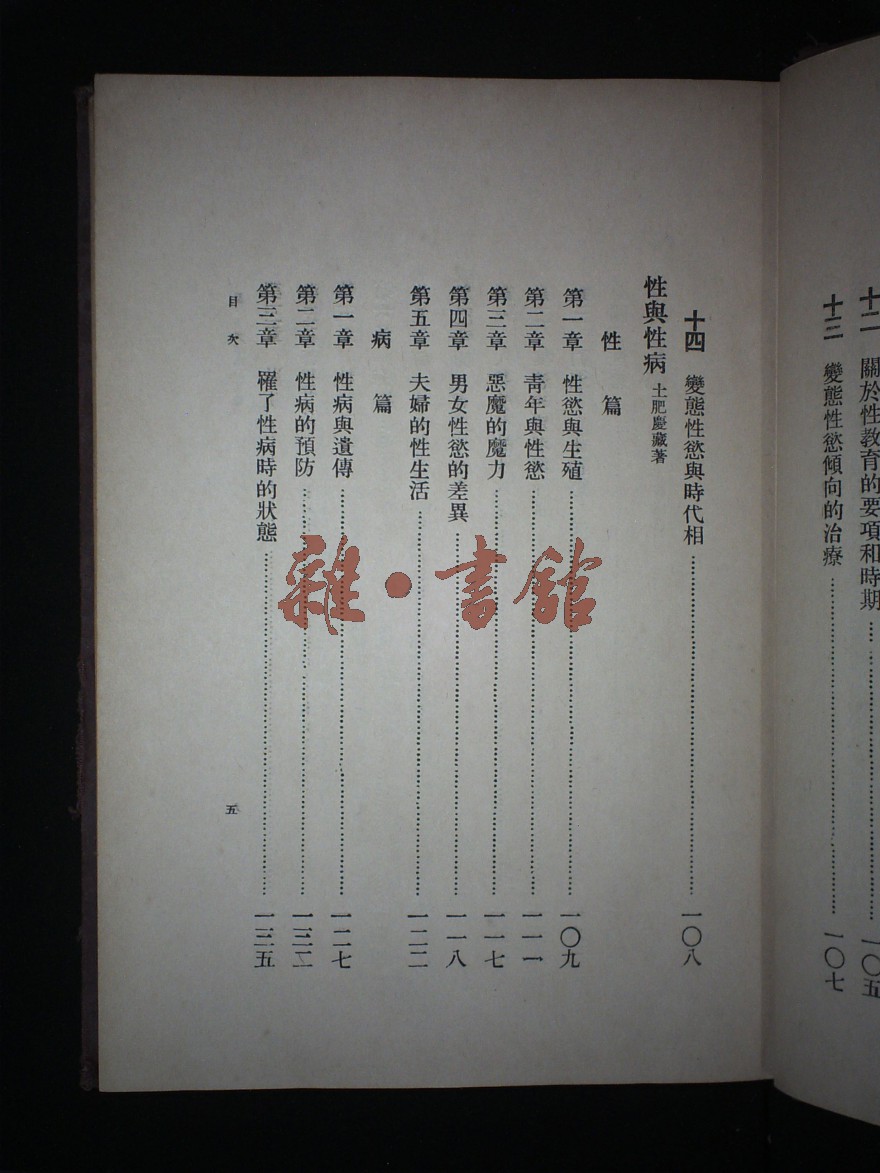 十二 關於性教育的要項和時期 一〇五
十三 變態性慾傾向的治療 一〇七
十四 變態性慾與時代相 一〇八
性與性病 土肥慶藏著
性篇
第一章 性慾與生殖 一〇九
第二章 青年與性慾 一一一
第三章 惡魔的魔力 一一七
第四章 男女性慾的差異 一一八
第五章 夫婦的性生活 一二二
病篇
第一章 性病與遺傳 一二七
第二章 性病的預防 一三二
第三章 罹了性病時的狀態 一三五
目次
五
雜·書館